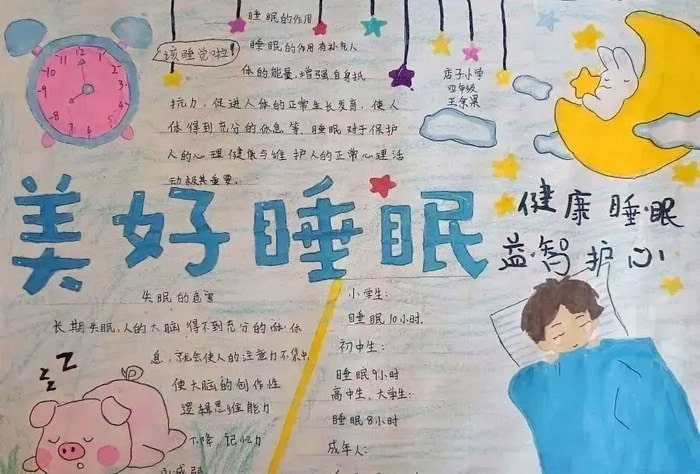 睡眠的作用
该睡觉啦!
睡眠的作用有补充人
体的能量,增强自身抵
抗力,促进人体的正常生长发育,使人
体得到充分的休息等.睡眠对于保护
人的心理健康与维护人的正常心理活
动极其重要.
店子小学
四年级
王余果
12
1
2
3
4
5
6
7
8
9
10
11
美好睡眠
健康睡眠
益智护心
失眠的危害
长期失眠,人的大脑得不到充分的休
息,就会使人的注意力不集中
使大脑的创作性
逻辑思维能力
下降,记忆力
zzz
小学生:
睡眠10小时.
初中生:
睡眠9小时
高中生、大学生:
睡眠8小时
成年人: